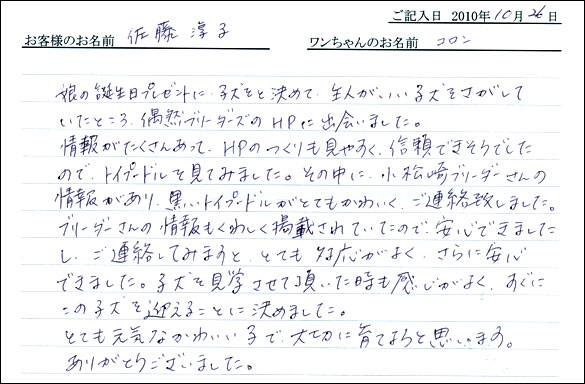 ご記入日 2010年10月26日
お客様のお名前 佐藤淳子 ワンちゃんのお名前 コロン
娘の誕生日プレゼントに、子犬をと決めて、主人がいい子犬をさがして
いたところ、偶然ブリーダーズのHPに出会いました。
情報がたくさんあって、HPのつくりも見やすく、信頼できそうでした
ので、トイプードルを見てみました。その中に、小松崎ブリーダーさんの
情報があり、黒いトイプードルがとてもかわいく、ご連絡致しました。
ブリーダーさんの情報もくわしく掲載されていたので、安心できました
し、ご連絡してみますと、とても対応がよく、さらに安心
できました。子犬を見学させて頂いた時も感じがよく、すぐに
この子犬を迎えることに決めました。
とても元気なかわいい子で大切に育てようと思います。
ありがとうございました。